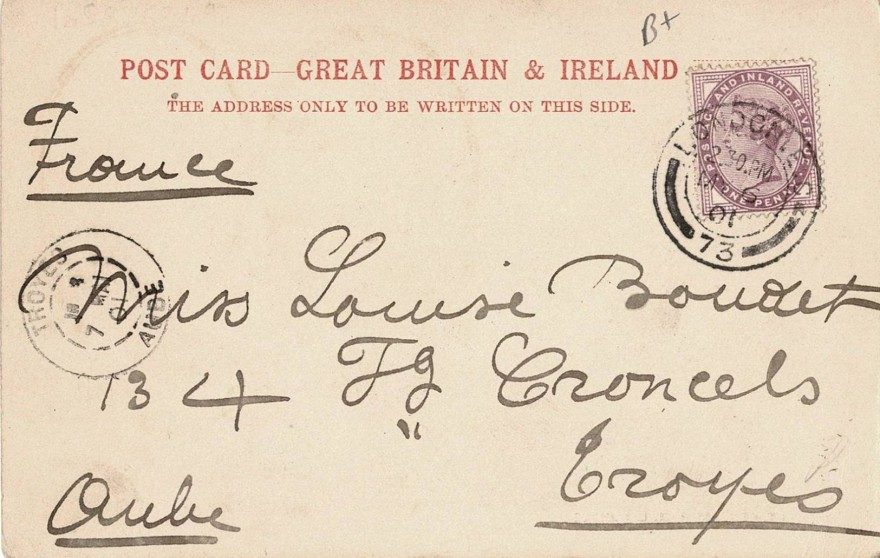 B+
POST CARD—GREAT BRITAIN & IRELAND
THE ADDRESS ONLY TO BE WRITTEN ON THIS SIDE.
POSTAGE AND INLAND REVENUE
ONE PENNY
LONDON
30.PM
01
73
France
TROYES
7
01
AUBE
Miss Louise Boudet
134 Fg Croncels
Troyes
Aube